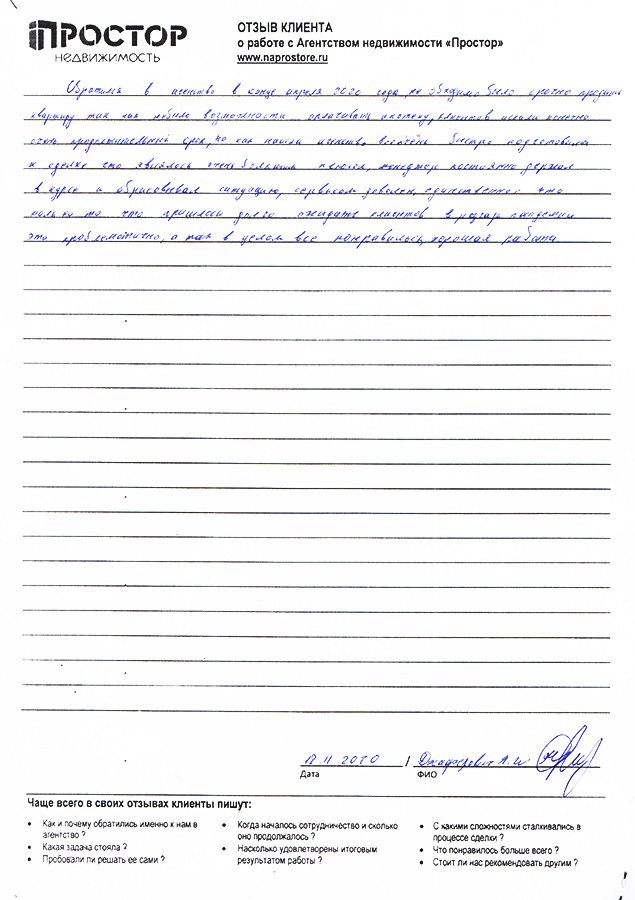 ПРОСТОР
НЕДВИЖИМОСТЬ
ОТЗЫВ КЛИЕНТА
о работе с Агентством недвижимости «Простор»
www.naprostore.ru
Обратился в агентство в конце апреля 2020 года, необходимо было срочно продать
квартиру так как небыло возможности оплачивать ипотеку, клиентов искали конечно
очень продолжительный срок, но как нашли агентство все очень быстро подготовила
к сделке что являлось очень большим плюсом, менеджер постоянно держал
в курсе и обрисовывал ситуацию, сервисом доволен, единственное это
только то что пришлось долго ожидать клиентов в разгар пандемии
это проблематично, а так в целом все понравилось, хорошая работа
18.11.2020 / А.И
Дата
ФИО
Чаще всего в своих отзывах клиенты пишут:
• Как и почему обратились именно к нам в агентство ?
• Какая задача стояла ?
• Пробовали ли решать ее сами ?
• Когда началось сотрудничество и сколько оно продолжалось ?
• Насколько удовлетворены итоговым результатом работы ?
• С какими сложностями сталкивались в процессе сделки ?
• Что понравилось больше всего ?
• Стоит ли нас рекомендовать другим ?